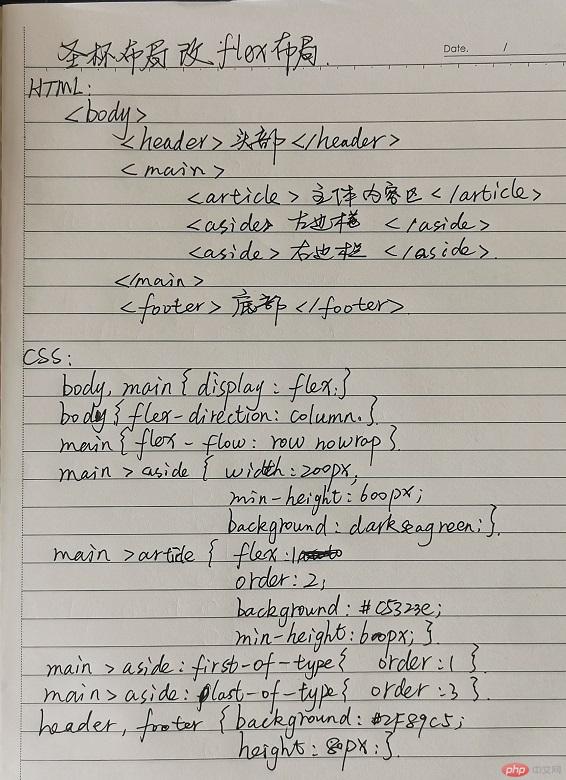 圣杯布局改flex布局.
Date. /
HTML:
<body>
<header>头部</header>
<main>
<article>主体内容区</article>
<aside>左边栏 </aside>
<aside>右边栏 </aside>
</main>
<footer>底部</footer>
CSS:
body, main{ display: flex;}
body{flex-direction: column;}
main{flex-flow: row nowrap}
main > aside { width:200px;
min-height:600px;
background: darkseagreen;}
main >article { flex:1
order:2;
background: #c5323e;
min-height:600px;}
main > aside:first-of-type{ order:1 }
main > aside: last-of-type{ order:3 }
header, footer {background: #2F89C5;
height: 80px;}
php 中文网